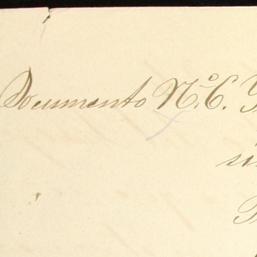 Documento N.º 6.